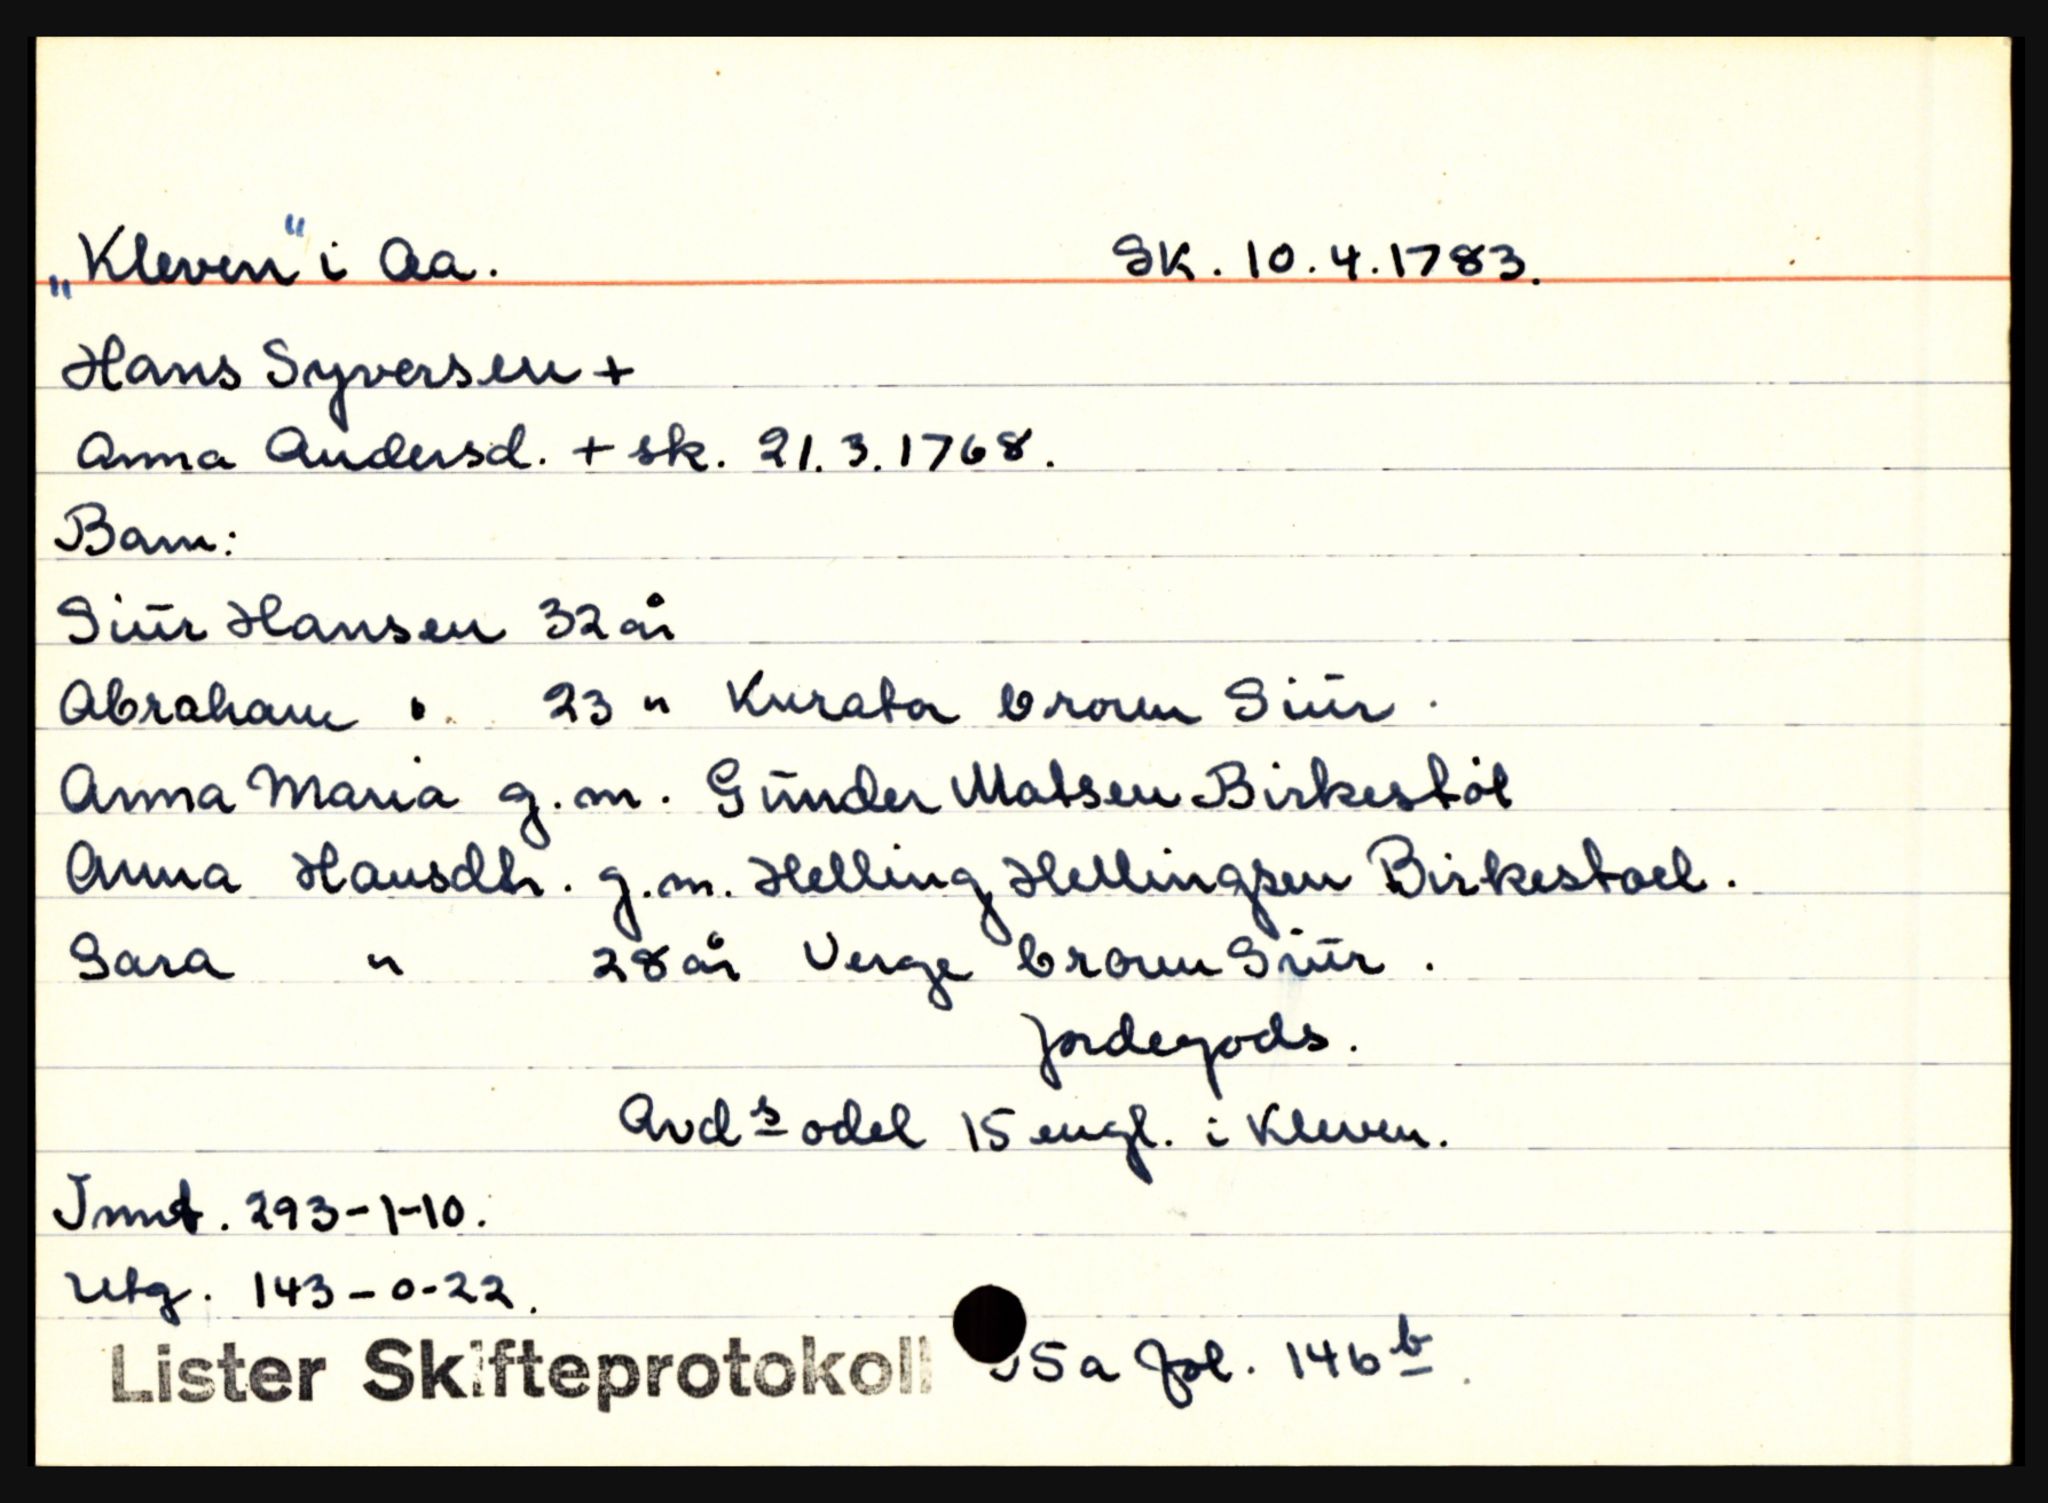 „Kleven" i Aa. Sk. 10.4.1783.
Hans Syversen +
Anna Andersd. + sk. 21.3.1768.
Barn:
Siūr Hansen 32 år
Abraham " 23 " Kurator broren Siūr.
Anna Maria g.m. Gūnder Matsen Birkestøl
Anna Hansdtr. g.m. Helling Hellingsen Birkestoel.
Sara " 28 år Verge broren Siūr.
Jordegods.
Avds odel 15 engl. i Kleven.
Innt. 293-1-10.
Utg. 143-0-22.
Lister Skifteprotokoll 5a fol. 146b.